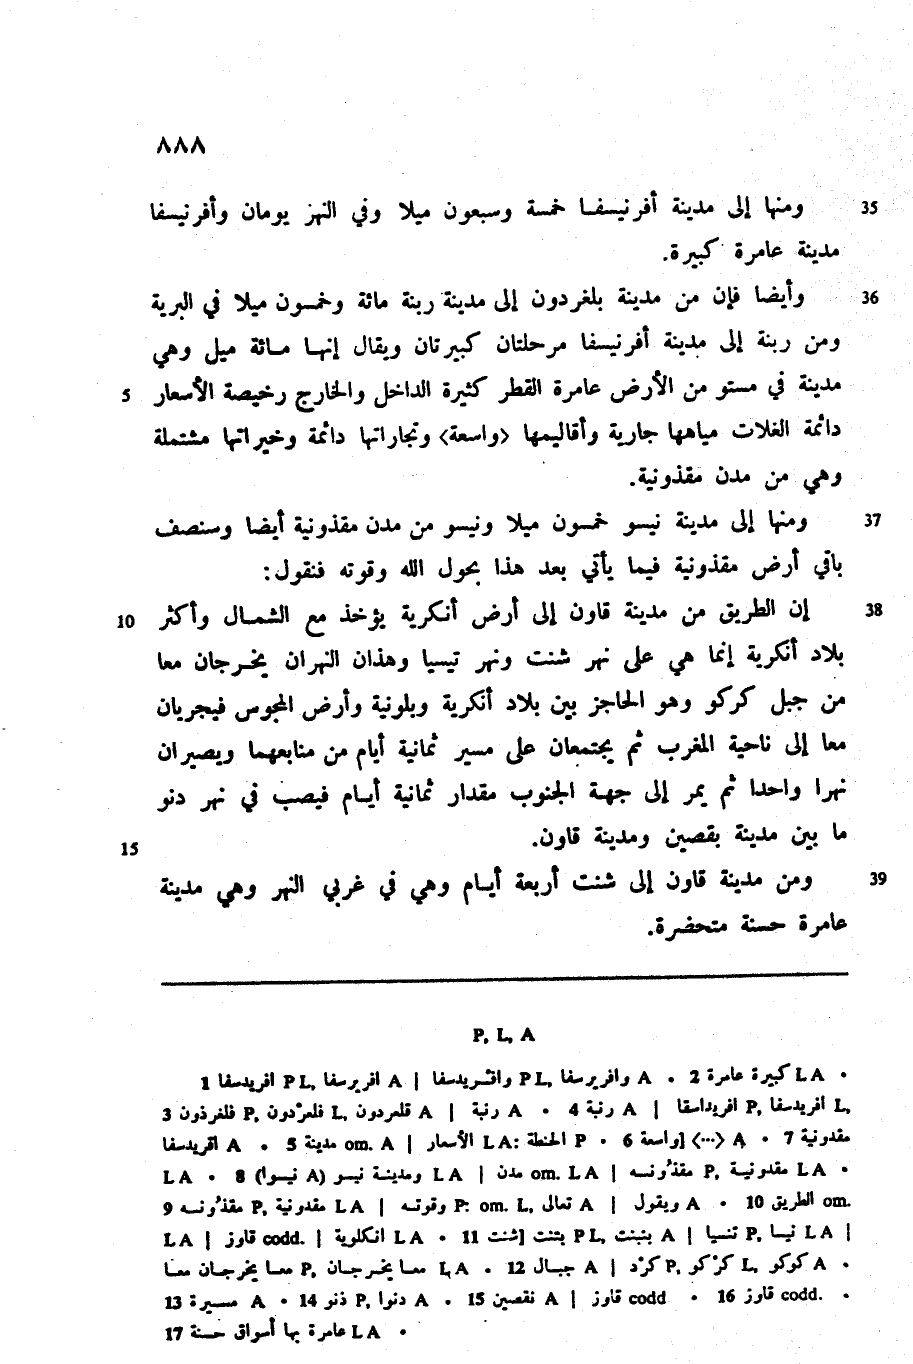 ٨٨٨
35 ومنها إلى مدينة أفرنيسفـا خمسة وسبعون ميلا وفي النهز يومان وأفرنيسفا
مدينة عامرة كبيرة.
36 وأيضا فإن من مدينة بلغردون إلى مدينة ربنة مائة وخمسون ميلا في البرية
ومن ربنة إلى مدينة أفرنيسفا مرحلتان كبيرتان ويقال إنهـا مـائة ميل وهي
5 مدينة في مستو من الأرض عامرة القطر كثيرة الداخل والخارج رخيصة الأسعار
دائمة الغلات مياهها جارية وأقاليمها <واسعة> وتجاراتها دائمة وخيراتها مشتملة
وهي من مدن مقذونية.
37 ومنها إلى مدينة نيسو خمسون ميلا ونيسو من مدن مقذونية أيضا وسنصف
باقي أرض مقذونية فيما يأتي بعد هذا بحول الله وقوته فنقول:
38 إن الطريق من مدينة قاون إلى أرض أنكرية يؤخذ مع الشمـال وأكثر 10
بلاد أنكرية إنما هي على نهر شنت ونهر تيسيا وهذان النهران يخـرجان معا
من جبل كركو وهو الحاجز بين بلاد أنكرية وبلونية وأرض المجوس فيجريان
معا إلى ناحية المغرب ثم يجتمعان على مسير ثمانية أيام من منابعهما ويصيران
نهرا واحدا ثم يمر إلى جهـة الجنوب مقدار ثمانية أيـام فيصب في نهر دنو
15 ما بين مدينة بقصين ومدينة قاون.
39 ومن مدينة قاون إلى شنت أربعة أيـام وهي في غربي النهر وهي مدينة
عامرة حسنة متحضرة.
P, L, A
1 افريدسفا P L, افريرسفا A | وافـريدسفا P L, وافريرسفا A • 2 كبيرة عامرة L A •
3 فلغرذون P, فلعرْدون L, قلعردون A | رنبة A • 4 رنبة A | افريداسقا P, افريدسفا L,
اقريدسفا A • 5 مدينة om. A | الأسعار L A: الحنطة P • 6 واسعة] <···> A • 7 مقدونية
L A • 8 (نيـوا A) ومدينـة نيـو L A | مدن om. L A | P, مقدونيـة L A •
9 P, مقدونية L A | وقوتـه P: om. L, تعالى A | ويقول A • 10 الطريق om.
L A | قاوز codd. | انكلوية L A • 11 شنت] بتنت P L, A | تنسيا P, نيـا L A |
كرْد P, كرْكو L, كوكو A •
معـا يخـرجـان P, معـا يخرجـان معـا L A • 12 جبـال A |
13 مسيرة A • 14 ذنو P, دنوا A • 15 نقصين A | قاوز codd • 16 قاوز codd. •
17 عامرة بها أسواق حسنة L A •